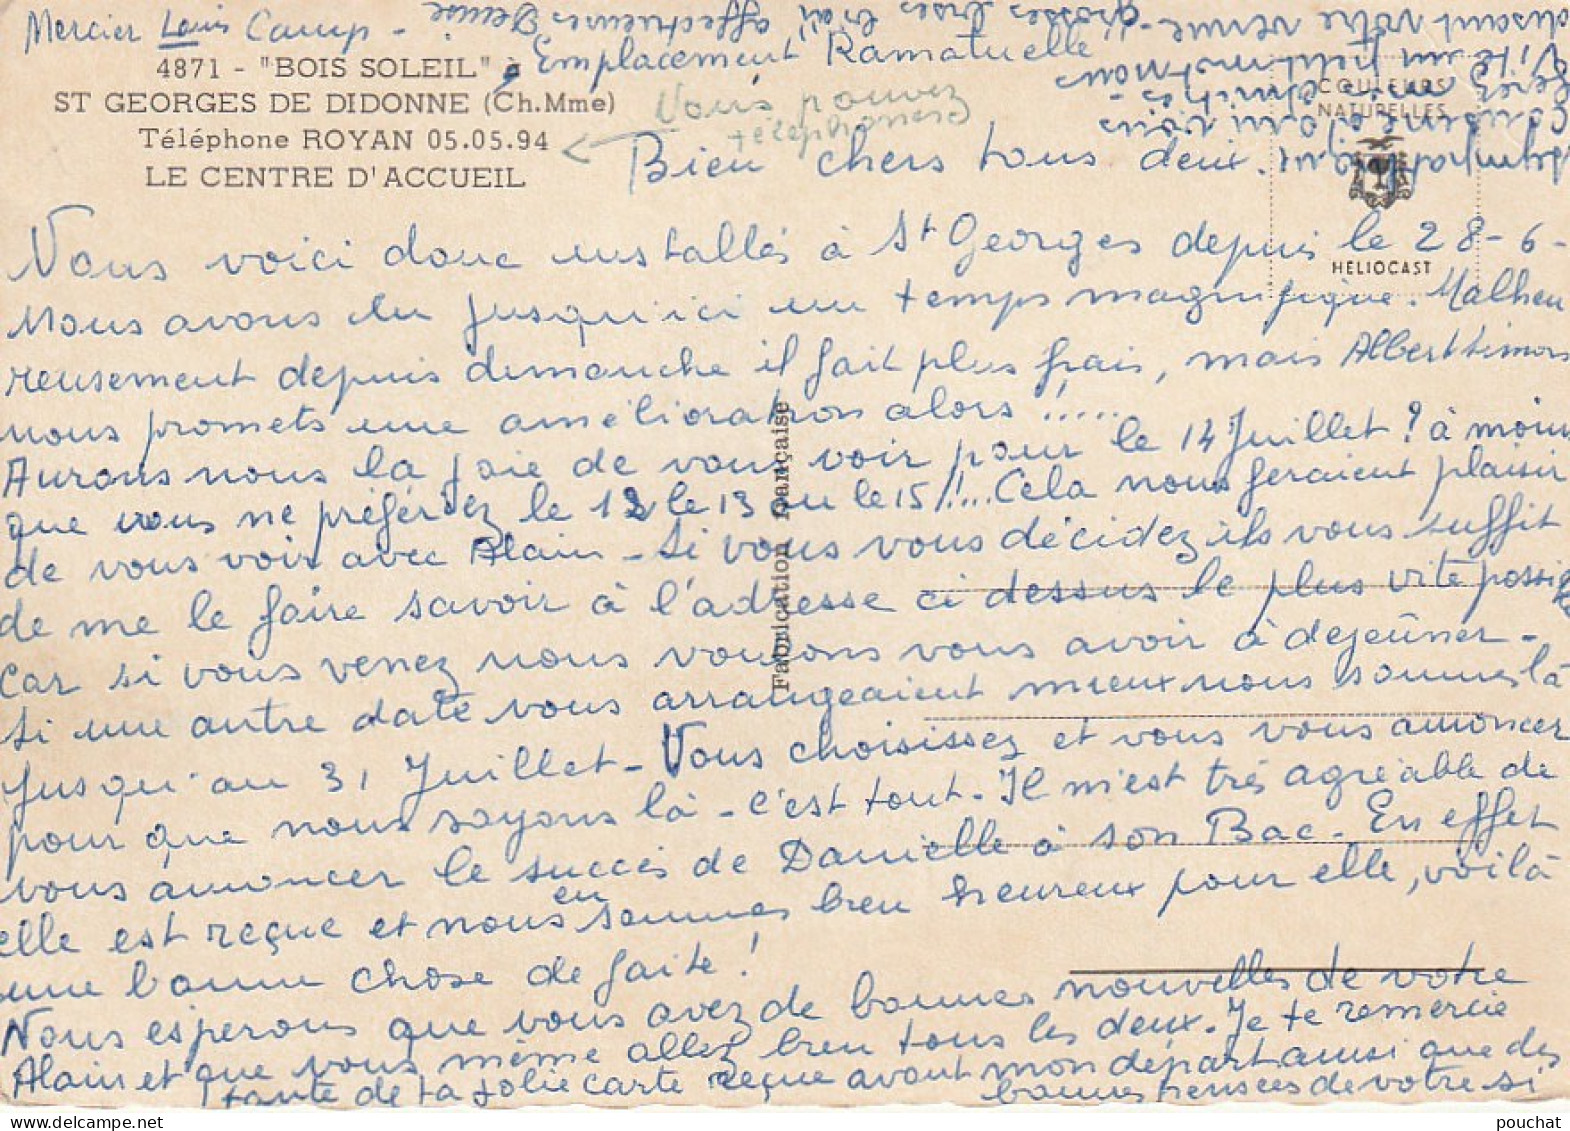 Mercier Louis Camp -
Emplacement Ramatuelle
4871 - "BOIS SOLEIL"
ST GEORGES DE DIDONNE (Ch.Mme)
Téléphone ROYAN 05.05.94
LE CENTRE D'ACCUEIL
Vous pouvez
téléphoner
COULEURS
NATURELLES
HELIOCAST
Fabrication Française
Bien chers tous deux.
Nous voici donc installés à St Georges depuis le 28-6-
Nous avons eu jusqu'ici un temps magnifique. Malheu
reusement depuis dimanche il fait plus frais, mais Albert Simon
nous promets une amélioration alors !.....
Aurons nous la joie de vous voir pour le 14 Juillet ? à moins
que vous ne préfériez le 12 le 13 ou le 15 !!... Cela nous feraient plaisir
de vous voir avec Alain - Si vous vous décidez ils vous suffit
de me le faire savoir à l'adresse ci dessus le plus vite possible
Car si vous venez nous voulons vous avoir à dejeûner -
Si une autre date vous arrangeaient mieux nous sommes là
Jusqu'au 31 Juillet - Vous choisissez et vous vous annoncer
pour que nous soyons là - C'est tout. Il m'est très agréable de
vous annoncer le succès de Danielle à son Bac. En effet
elle est reçue et nous en sommes bien heureux pour elle, voilà
une bonne chose de faite !
Nous espérons que vous avez de bonnes nouvelles de votre
Alain et que vous même allez bien tous les deux. Je te remercie
tante de ta jolie carte reçue avant mon départ ainsi que des
bonnes pensées de votre si
sympathique
cousine et ami voisins
amitiés -
Ferez
Vite un petit mot nous
disant votre venue - grosses bises
affectueuses Denise
pouchat